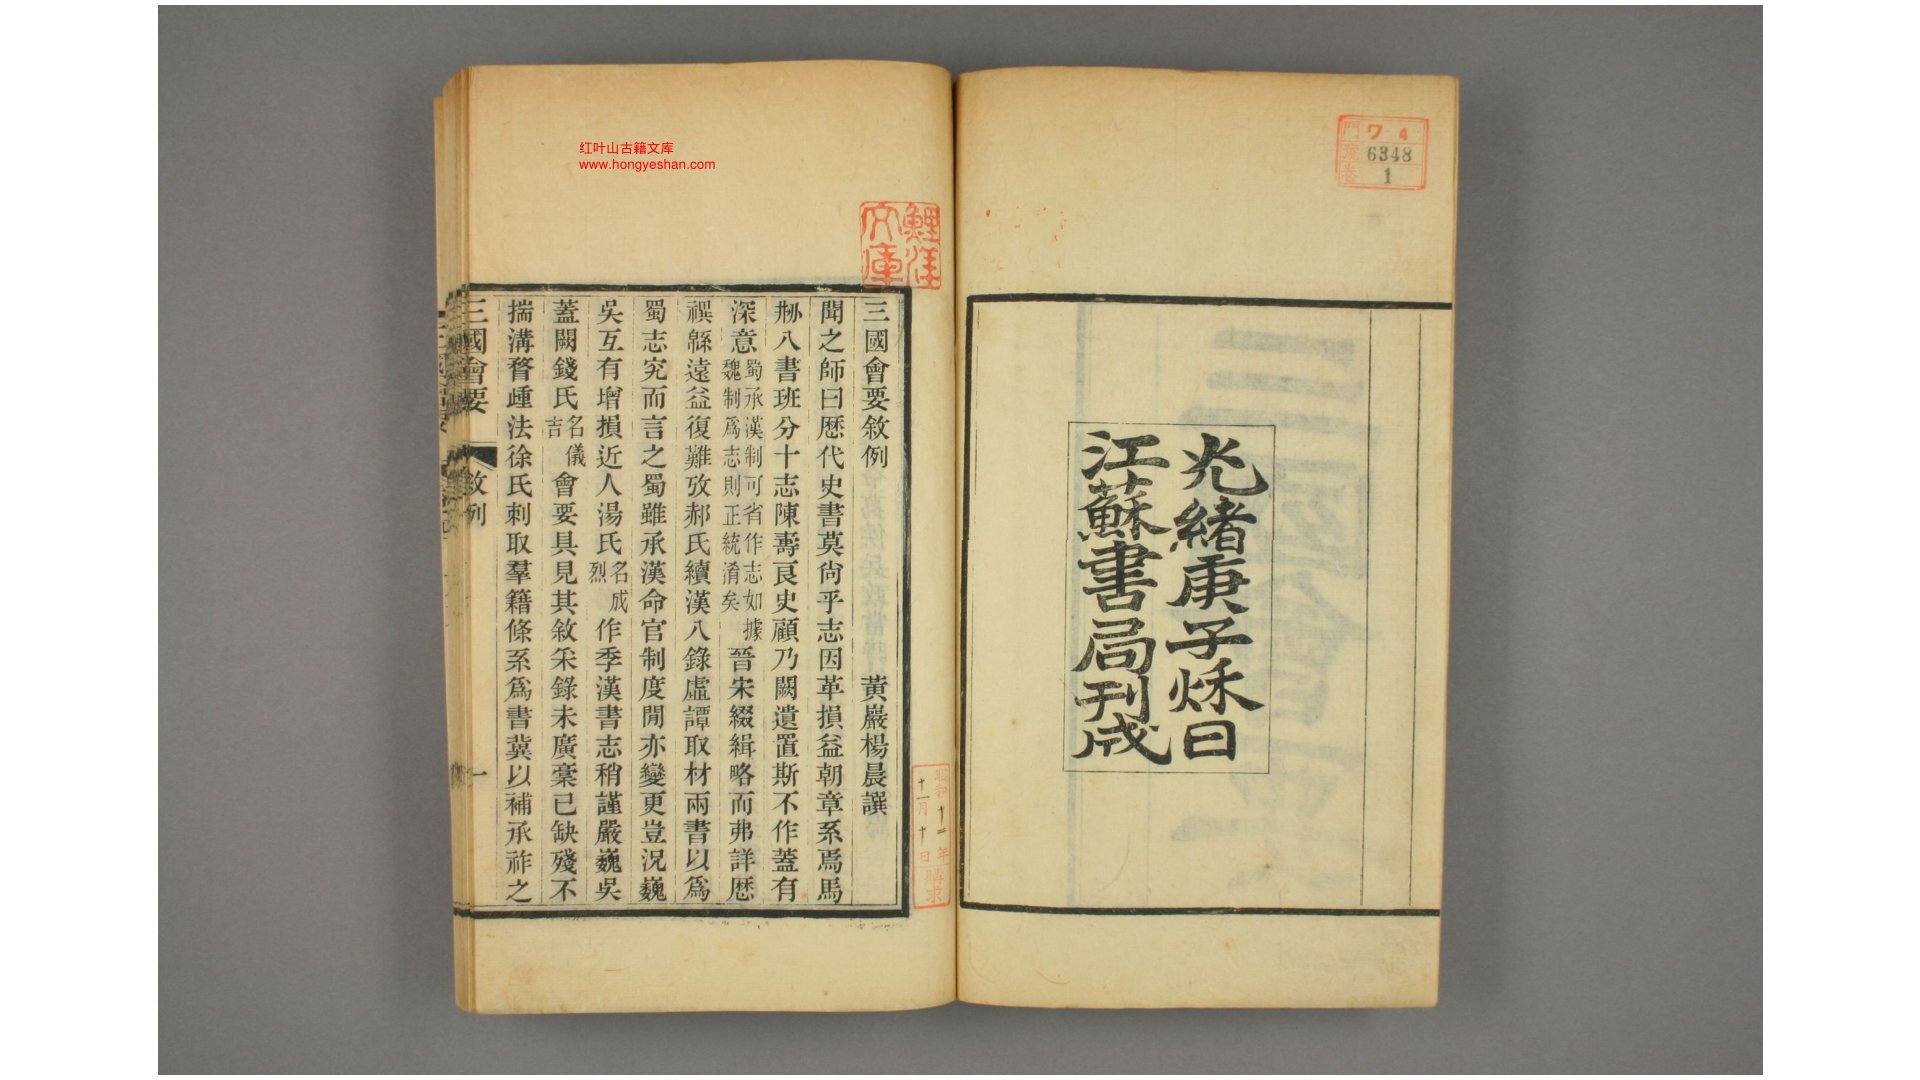 红叶山古籍文库
www.hongyeshan.com
門 ワ 4
號 6348
卷 1
光緒庚子烁日
江蘇書局刊成
三國會要敘例 黃巖楊晨譔
聞之師曰歷代史書莫尙乎志因革損益朝章系焉馬
刱八書班分十志陳壽良史顧乃闕遺置斯不作蓋有
深意蜀承漢制可省作志如據魏制爲志則正統淆矣晉宋綴緝略而弗詳歷
禩緜遠益復難攷郝氏續漢八錄虛譚取材兩書以爲
蜀志究而言之蜀雖承漢命官制度閒亦變更豈況巍
吳互有增損近人湯氏名成烈作季漢書志稍謹嚴巍吳
蓋闕錢氏名儀吉會要具見其敘采錄未廣稾已缺殘不
揣溝瞀踵法徐氏刺取羣籍條系爲書冀以補承祚之
三國會要 敘例 一
鯉洋文庫
昭和十二年
十一月十日
購求